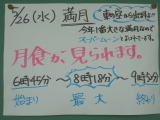 5/26(水) 満月
東の空から出ます!!
今年1番大きな満月なので
スーパームーンとよばれています。
月食が、見られます。
6時45分〜 8時18分〜 9時52分
始まり 最大 終わり